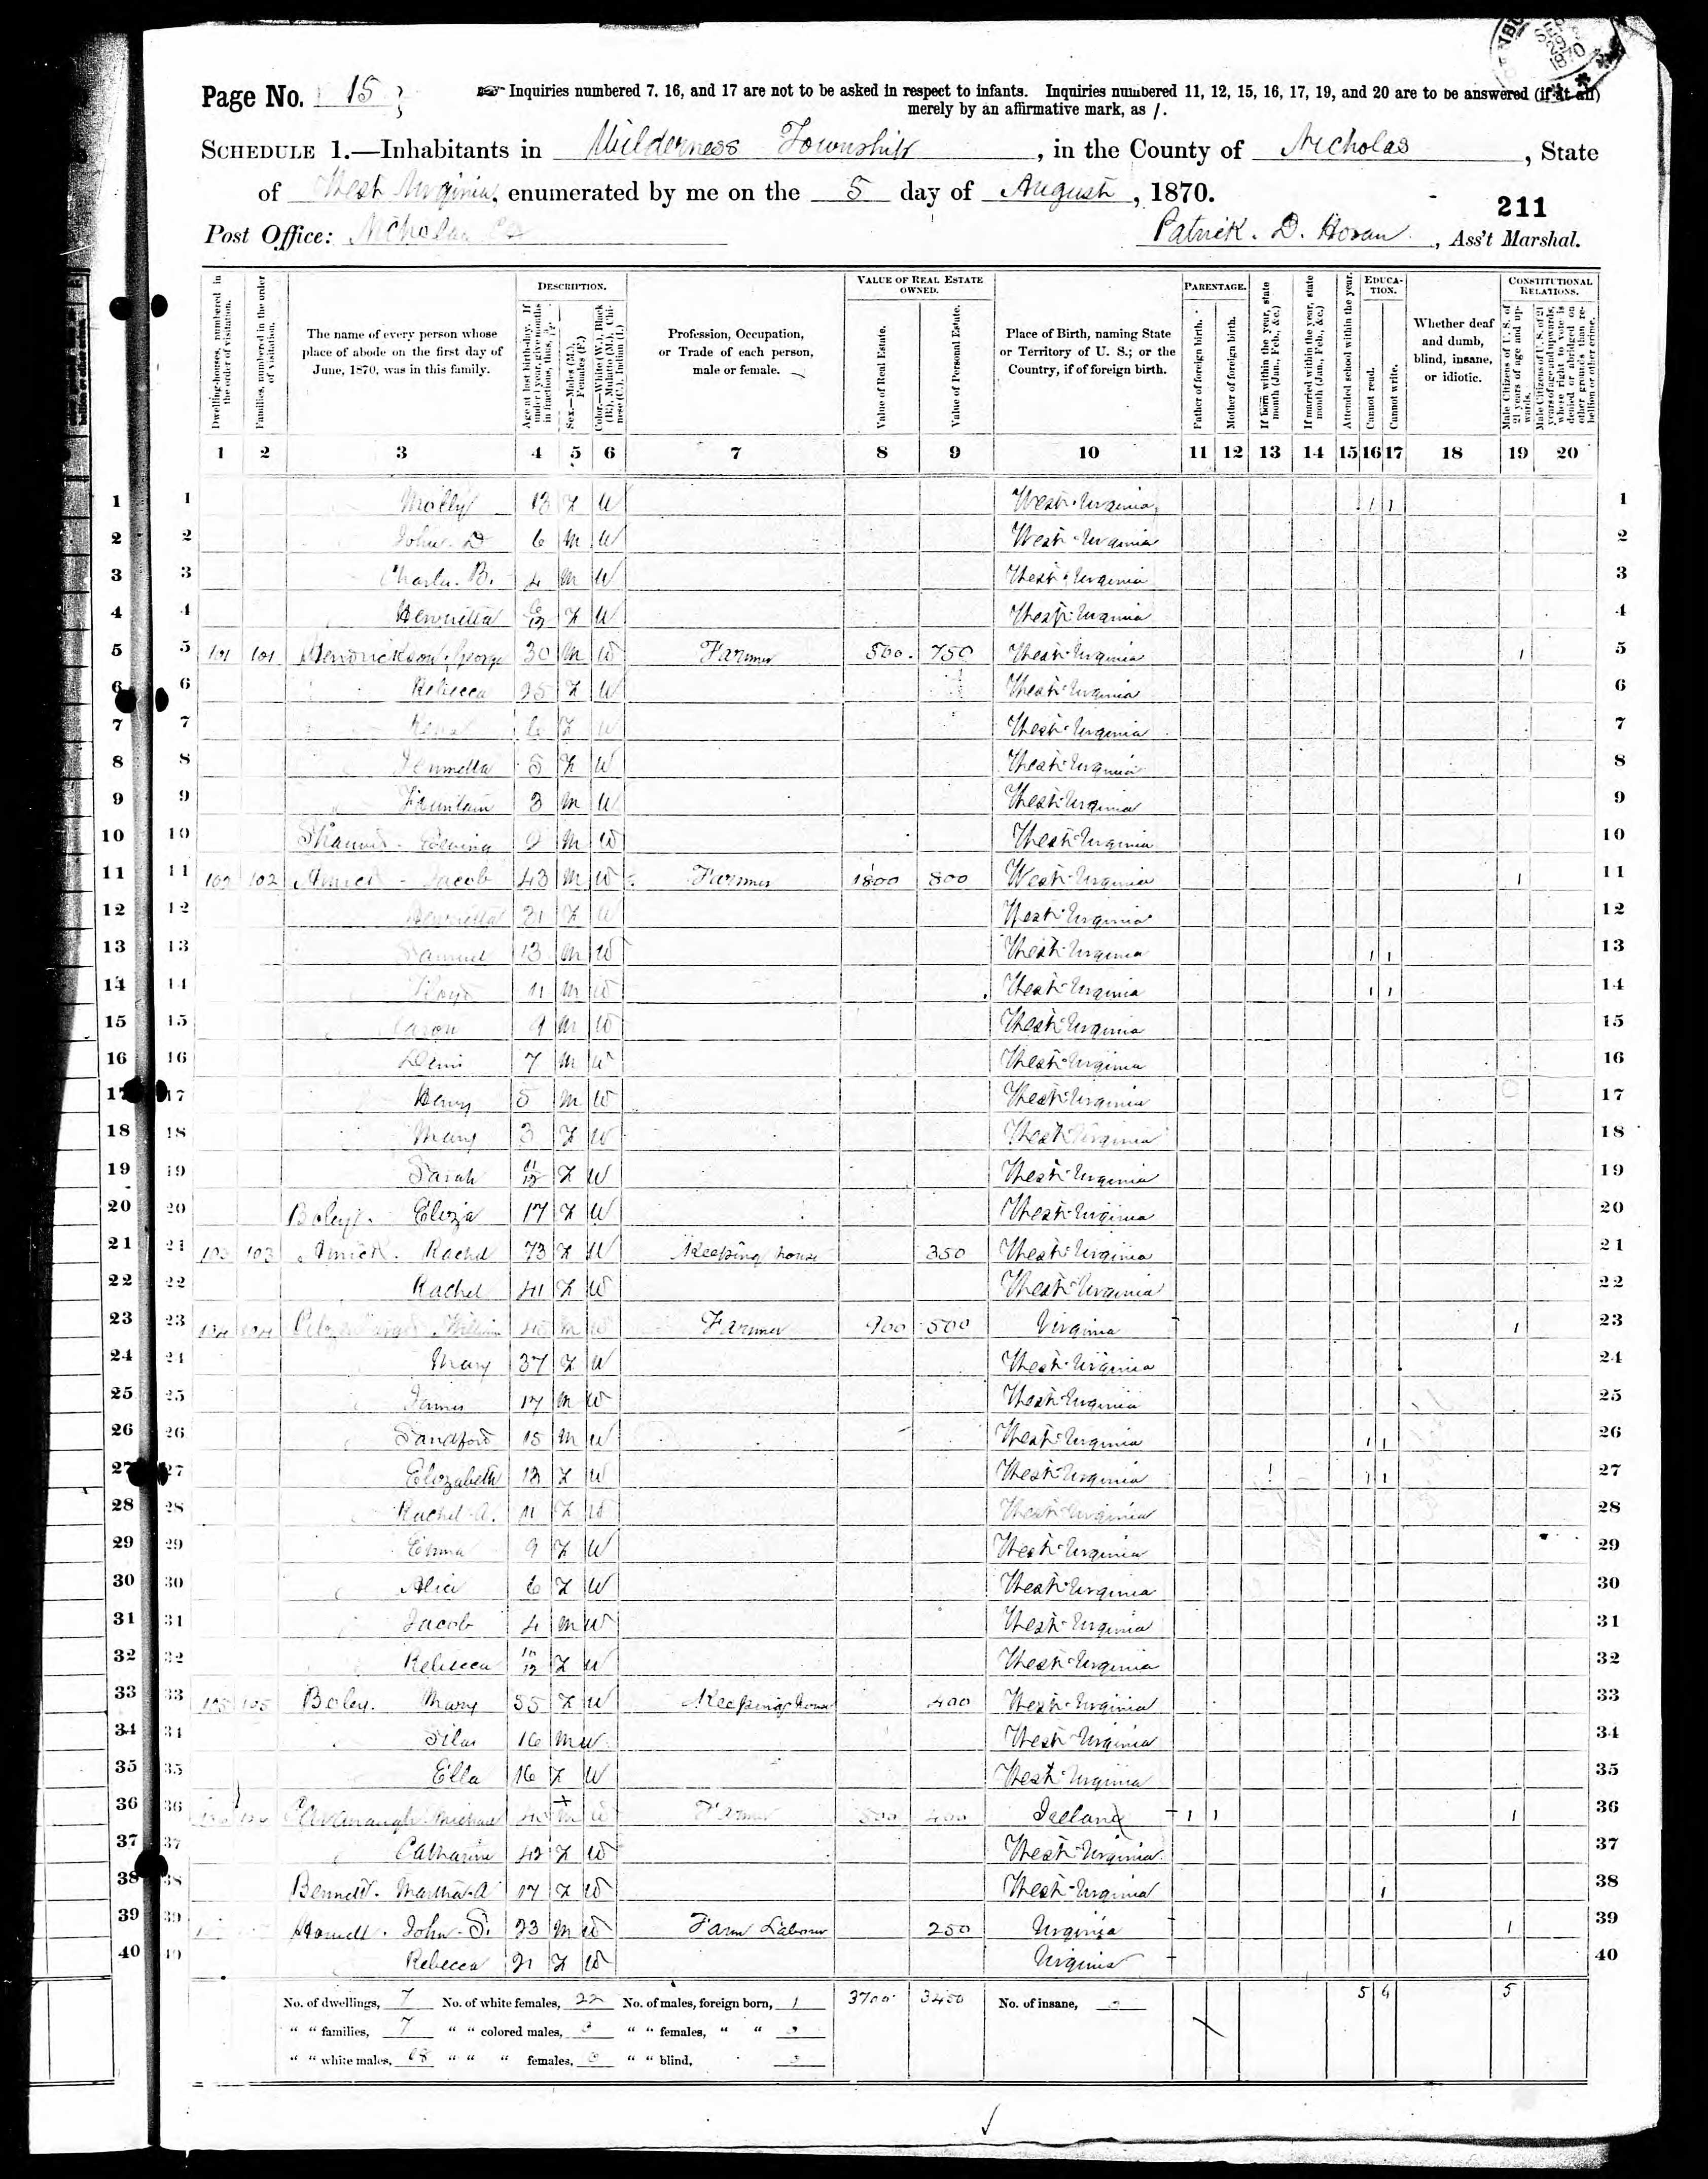 SEP 29 1870
Page No. 15
Inquiries numbered 7, 16, and 17 are not to be asked in respect to infants. Inquiries numbered 11, 12, 15, 16, 17, 19, and 20 are to be answered (if at all)
merely by an affirmative mark, as /.
SCHEDULE 1.—Inhabitants in Wilderness Township, in the County of Nicholas, State
of West Virginia, enumerated by me on the 5 day of August, 1870.
211
Post Office: Nicholas CH
Patrick. D. Horan, Ass't Marshal.
Dwelling-houses, numbered in the order of visitation.
Families, numbered in the order of visitation.
The name of every person whose place of abode on the first day of June, 1870, was in this family.
DESCRIPTION.
Age at last birth-day. If under 1 year, give months in fractions, thus, 3/12.
Sex.—Males (M.), Females (F.)
Color.—White (W.), Black (B.), Mulatto (M.), Chinese (C.), Indian (I.)
Profession, Occupation, or Trade of each person, male or female.
VALUE OF REAL ESTATE OWNED.
Value of Real Estate.
Value of Personal Estate.
Place of Birth, naming State or Territory of U. S.; or the Country, if of foreign birth.
PARENTAGE.
Father of foreign birth.
Mother of foreign birth.
If born within the year, state month (Jan., Feb., &c.)
If married within the year, state month (Jan., Feb., &c.)
Attended school within the year.
EDUCATION.
Cannot read.
Cannot write.
Whether deaf and dumb, blind, insane, or idiotic.
CONSTITUTIONAL RELATIONS.
Male Citizens of U. S. of 21 years of age and upwards.
Male Citizens of U. S. of 21 years of age and upwards, where right to vote is denied or abridged on other grounds than rebellion or other crime.
1 2 3 4 5 6 7 8 9 10 11 12 13 14 15 16 17 18 19 20
1 1 Molly 13 F W West Virginia 1 1 1
2 2 John. D 6 M W West Virginia 2
3 3 Charles. B. 4 M W West Virginia 3
4 4 Henrietta F W West Virginia 4
5 5 101 101 Hendrickson George 30 M W Farmer 500. 750 West Virginia 1 5
6 6 Rebecca 25 F W West Virginia 6
7 7 6 F W West Virginia 7
8 8 5 F W West Virginia 8
9 9 Fountain 3 M W West Virginia 9
10 10 M W West Virginia 10
11 11 102 102 Amick - Jacob 43 M W Farmer 1800 800 West Virginia 1 11
12 12 Henrietta 31 F W West Virginia 12
13 13 Samuel 13 M W West Virginia 1 1 13
14 14 11 M W West Virginia 1 1 14
15 15 Aaron 9 M W West Virginia 15
16 16 7 M W West Virginia 16
17 17 Henry 5 M W West Virginia 17
18 18 Mary 3 F W West Virginia 18
19 19 Sarah 11/12 F W West Virginia 19
20 20 Eliza 17 F W West Virginia 20
21 21 103 103 Amick. Rachel 73 F W Keeping house 350 West Virginia 21
22 22 Rachel 41 F W West Virginia 22
23 23 104 104 William M W Farmer 900 500 Virginia 1 23
24 24 Mary 37 F W West Virginia 24
25 25 James 17 M W West Virginia 25
26 26 Sandford 15 M W West Virginia 1 1 26
27 27 Elizabeth 13 F W West Virginia 1 1 27
28 28 Rachel A. 11 F W West Virginia 28
29 29 Emma 9 F W West Virginia 29
30 30 Alice 6 F W West Virginia 30
31 31 Jacob 4 M W West Virginia 31
32 32 Rebecca 10/12 F W West Virginia 32
33 33 105 105 Boley. Mary 55 F W Keeping house 400 West Virginia 33
34 34 Silas 16 M W West Virginia 34
35 35 Ella 16 F W West Virginia 35
36 36 106 106 Michael M W Farmer 500 400 Ireland 1 1 1 36
37 37 Catharine 42 F W West Virginia 37
38 38 Bennett. Martha A 17 F W West Virginia 1 38
39 39 John. S. 23 M W Farm Laborer 250 Virginia 1 39
40 40 Rebecca 21 F W Virginia 40
No. of dwellings, 7 No. of white females, 22 No. of males, foreign born, 1 3700 3450 No. of insane, 5 6 5
" " families, 7 " " colored males, 0 " " females, " "
" " white males, 18 " " " females, 0 " " blind,